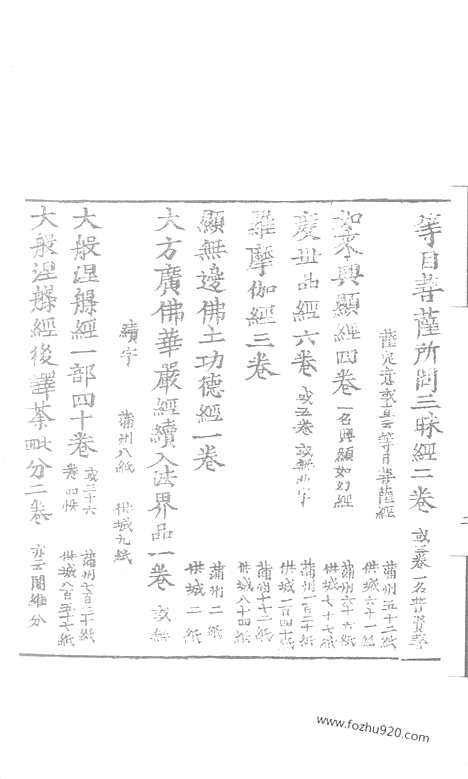 等目菩薩所問三昧經二卷 或三卷一名普賢菩
薩定意或直云等目菩薩經 蒲州五十二紙 供城六十一紙
如來興顯經四卷 一名興顯如幻經 蒲州六十六紙 供城七十七紙
度世品經六卷 或五卷或無世字 蒲州一百二十紙 供城一百四十紙
羅摩伽經三卷 蒲州七十二紙 供城八十四紙
顯無邊佛土功德經一卷 蒲州二紙 供城二紙
大方廣佛華嚴經續入法界品一卷 或無
續字 蒲州八紙 供城九紙
大般涅槃經一部四十卷 或三十六卷四帙 蒲州七百二十紙 供城八百五十七紙
大般涅槃經後譯荼毗分二卷 亦云闍維分
www.fozhu920.com